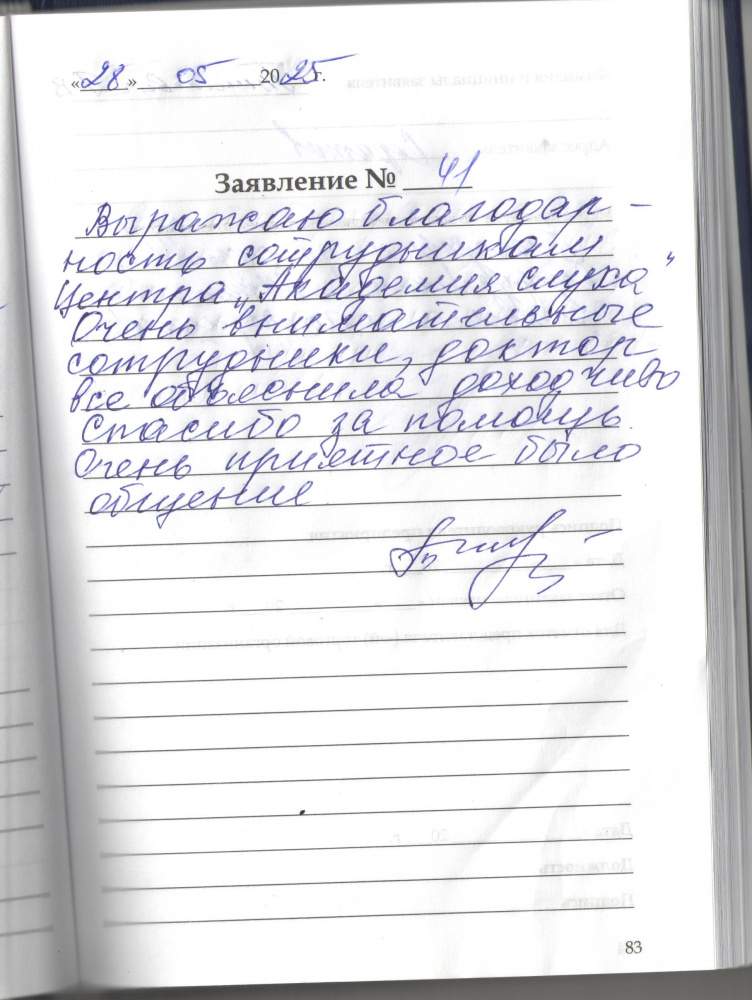 «28» 05 2025 г.
Заявление № 41
Выражаю благодар-
ность сотрудникам
Центра „Академия слуха"
Очень внимательные
сотрудники, доктор
все объяснила доходчиво
Спасибо за помощь.
Очень приятное было
общение
83